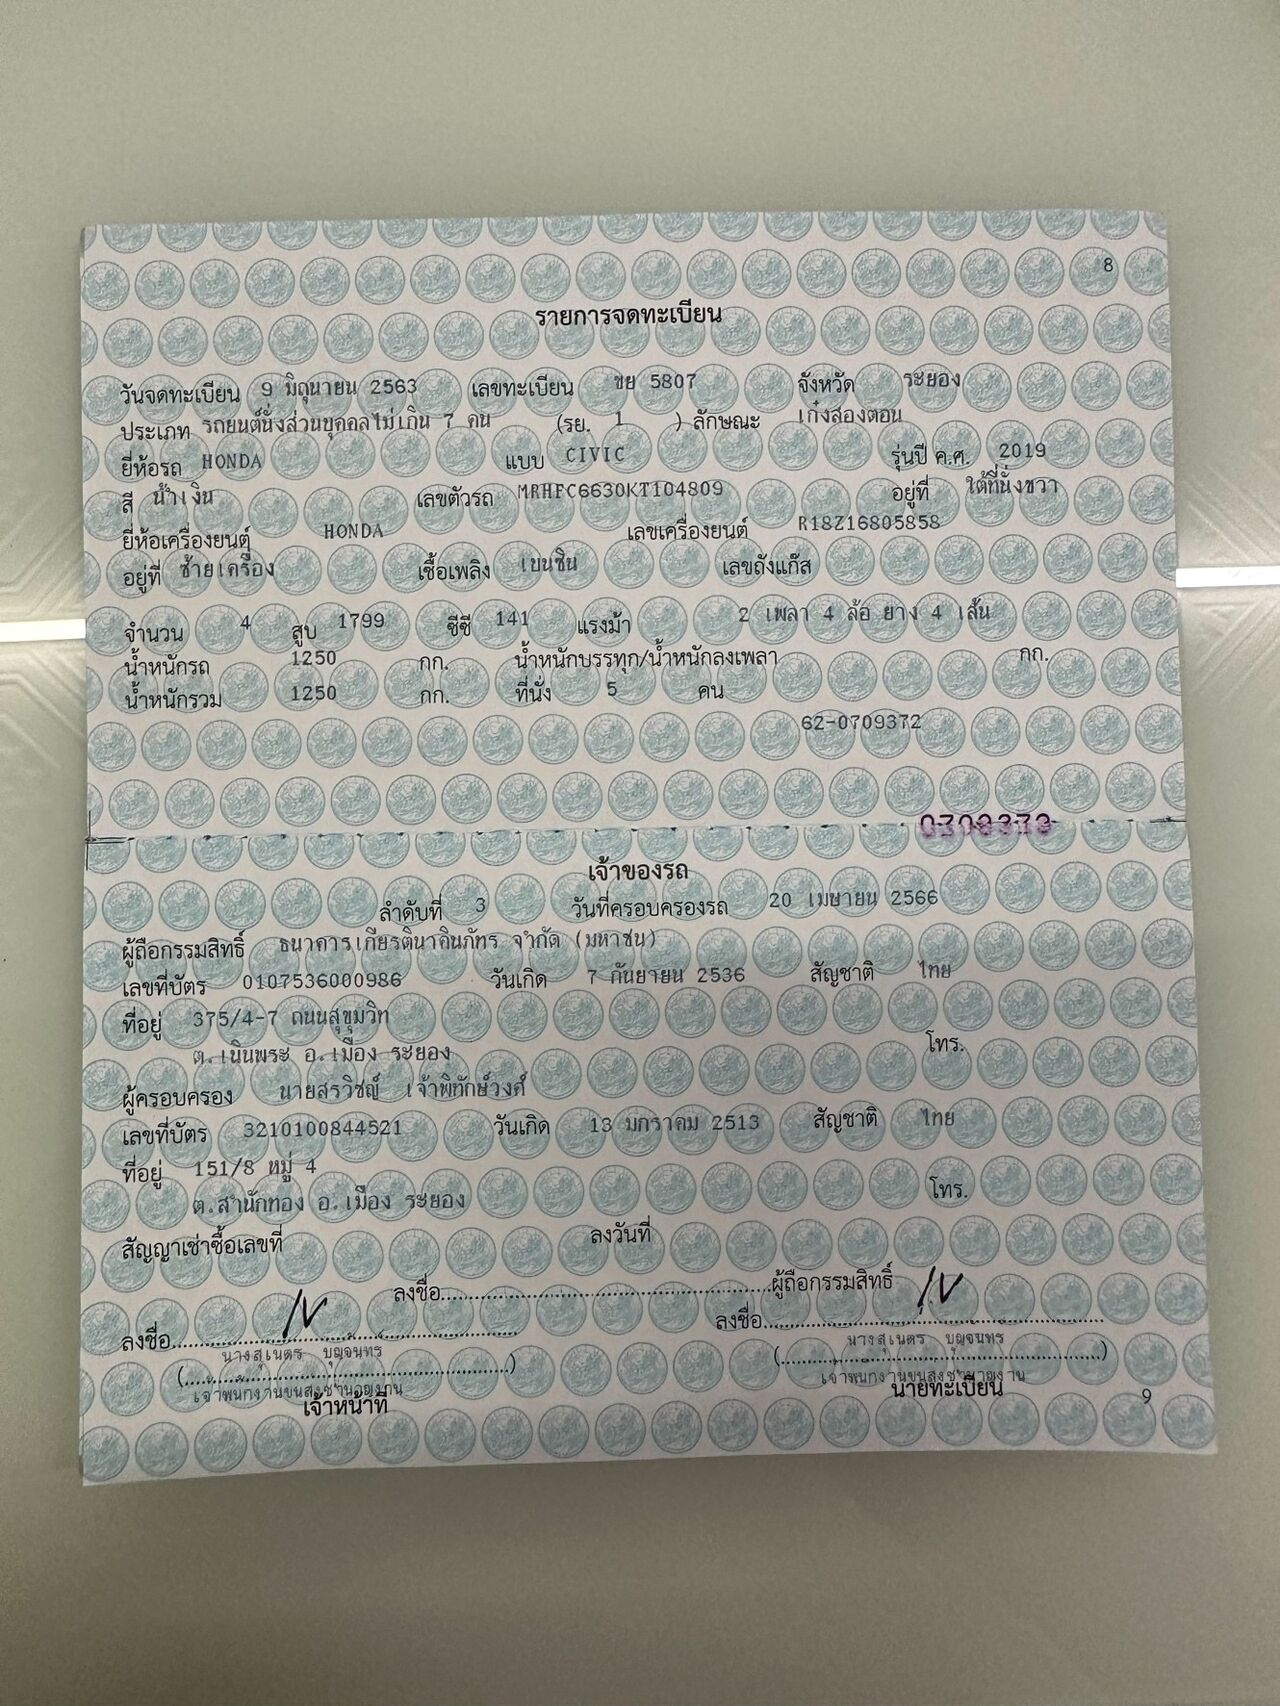 8
รายการจดทะเบียน
วันจดทะเบียน 9 มิถุนายน 2563 เลขทะเบียน ขย 5807 จังหวัด ระยอง
ประเภท รถยนต์นั่งส่วนบุคคลไม่เกิน 7 คน (รย. 1 ) ลักษณะ เก๋งสองตอน
ยี่ห้อรถ HONDA แบบ CIVIC รุ่นปี ค.ศ. 2019
สี น้ำเงิน เลขตัวรถ MRHFC6630KT104809 อยู่ที่ ใต้ที่นั่งขวา
ยี่ห้อเครื่องยนต์ HONDA เลขเครื่องยนต์ R18Z16805858
อยู่ที่ ซ้ายเครื่อง เชื้อเพลิง เบนซิน เลขถังแก๊ส
จำนวน 4 สูบ 1799 ซีซี 141 แรงม้า 2 เพลา 4 ล้อ ยาง 4 เส้น
น้ำหนักรถ 1250 กก. น้ำหนักบรรทุก/น้ำหนักลงเพลา กก.
น้ำหนักรวม 1250 กก. ที่นั่ง 5 คน
62-0709372
เจ้าของรถ
ลำดับที่ 3 วันที่ครอบครองรถ 20 เมษายน 2566
ผู้ถือกรรมสิทธิ์ ธนาคารเกียรตินาคินภัทร จำกัด (มหาชน)
เลขที่บัตร 0107536000986 วันเกิด 7 กันยายน 2536 สัญชาติ ไทย
ที่อยู่ 375/4-7 ถนนสุขุมวิท
ต.เนินพระ อ.เมือง ระยอง โทร.
ผู้ครอบครอง นายสรวิชญ์ เจ้าพิทักษ์วงศ์
เลขที่บัตร 3210100844521 วันเกิด 13 มกราคม 2513 สัญชาติ ไทย
ที่อยู่ 151/8 หมู่ 4
ต.สำนักทอง อ.เมือง ระยอง โทร.
สัญญาเช่าซื้อเลขที่ ลงวันที่
ลงชื่อ ผู้ถือกรรมสิทธิ์
ลงชื่อ ลงชื่อ
นางสุเนตร บุญจันทร นางสุเนตร บุญจันทร
( ) ( )
เจ้าพนักงานขนส่งชำนาญงาน เจ้าพนักงานขนส่งชำนาญงาน
เจ้าหน้าที่ นายทะเบียน
9